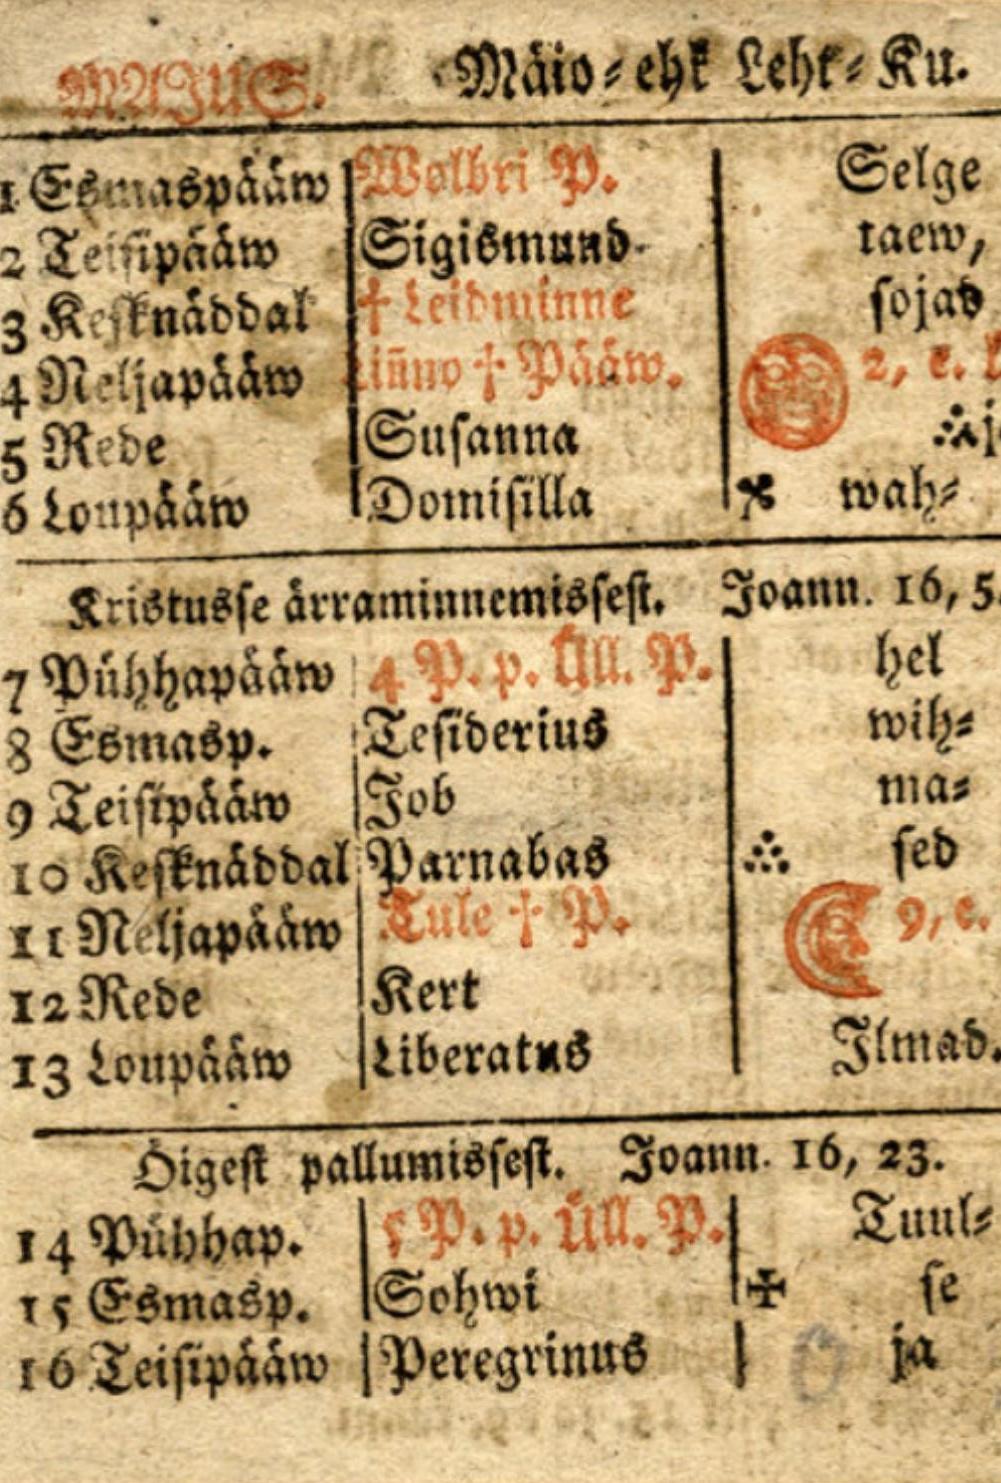 MAJUS. Mäio-ehk Leht-Ku.
1 Esmaspääw Wolbri P. Selge
2 Teisipääw Sigismund. taew,
3 Kesknäddal † Leidminne sojad
4 Neljapääw Liñno † Pääw. 2, e.
5 Rede Susanna
6 Loupääw Domisilla wah-
Kristusse ärraminnemissest. Joann. 16, 5.
7 Pühhapääw 4 P. p. Üll. P. hel
8 Esmasp. Tesiderius wih-
9 Teisipääw Job ma-
10 Kesknäddal Parnabas sed
11 Neljapääw Tule † P. 9, e.
12 Rede Kert
13 Loupääw Liberatus Ilmad.
Öigest pallumissest. Joann. 16, 23.
14 Pühhap. 5 P. p. Üll. P. Tuul-
15 Esmasp. Sohwi ✠ se
16 Teisipääw Peregrinus ja